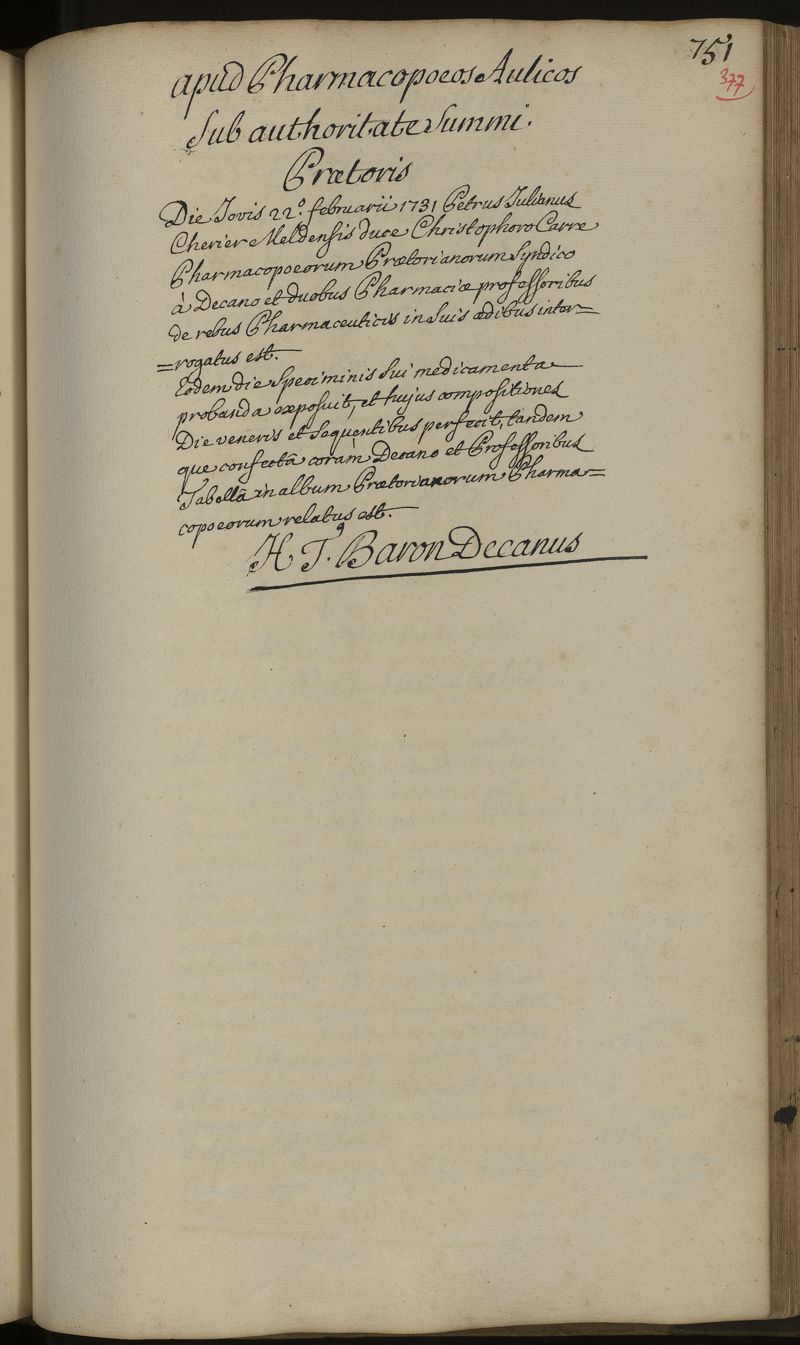 751
377
apud Pharmacopoeos Aulicos
Sub authoritate Summi.
Prætoris
Die Jovis 22.° februarii 1731 Petrus Julianus
Cherier Meldensis duce Christophoro Carre
Pharmacopoeorum Prætorianorum Syndico
à Decano et duobus Pharmaciæ professoribus
de rebus Pharmaceuticis in suis ædibus inter=
=rogatus est.
Eodem die Speciminis sui medicamenta
probanda exposuit, et hujus compositiones
Die veneris et sequentibus perfecit, tandem
que confectâ coràm Decano et Professoribus
Tabellâ in album Prætorianorum Pharma=
copoeorum relatus est.
H T. Baron Decanus